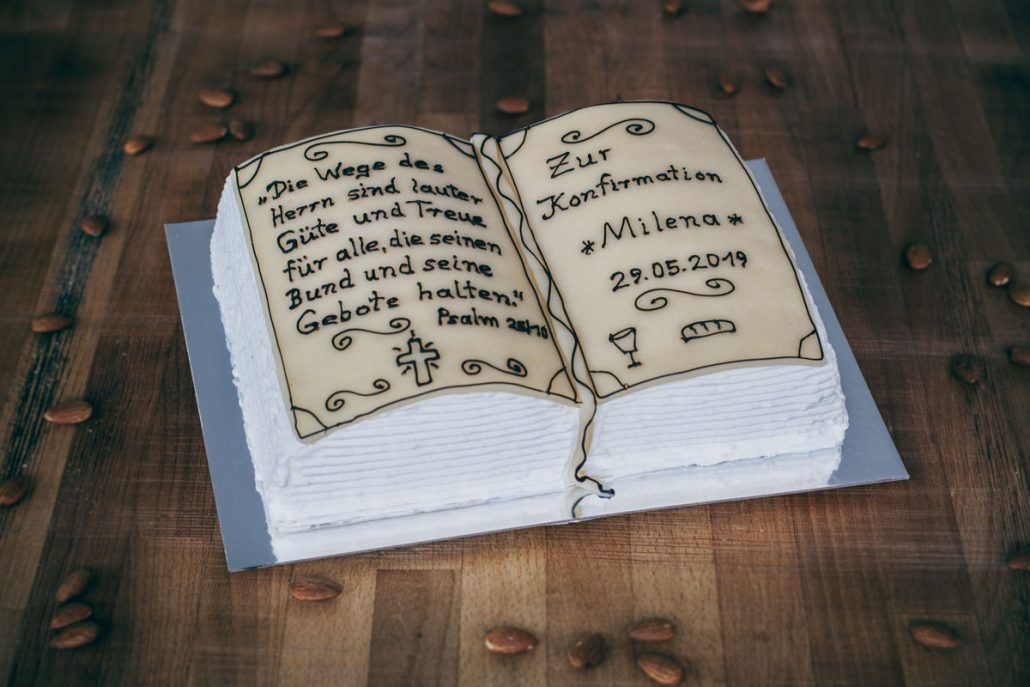 „Die Wege des
Herrn sind lauter
Güte und Treue
für alle, die seinen
Bund und seine
Gebote halten."
Psalm 25,10
Zur
Konfirmation
*Milena*
29.05.2019